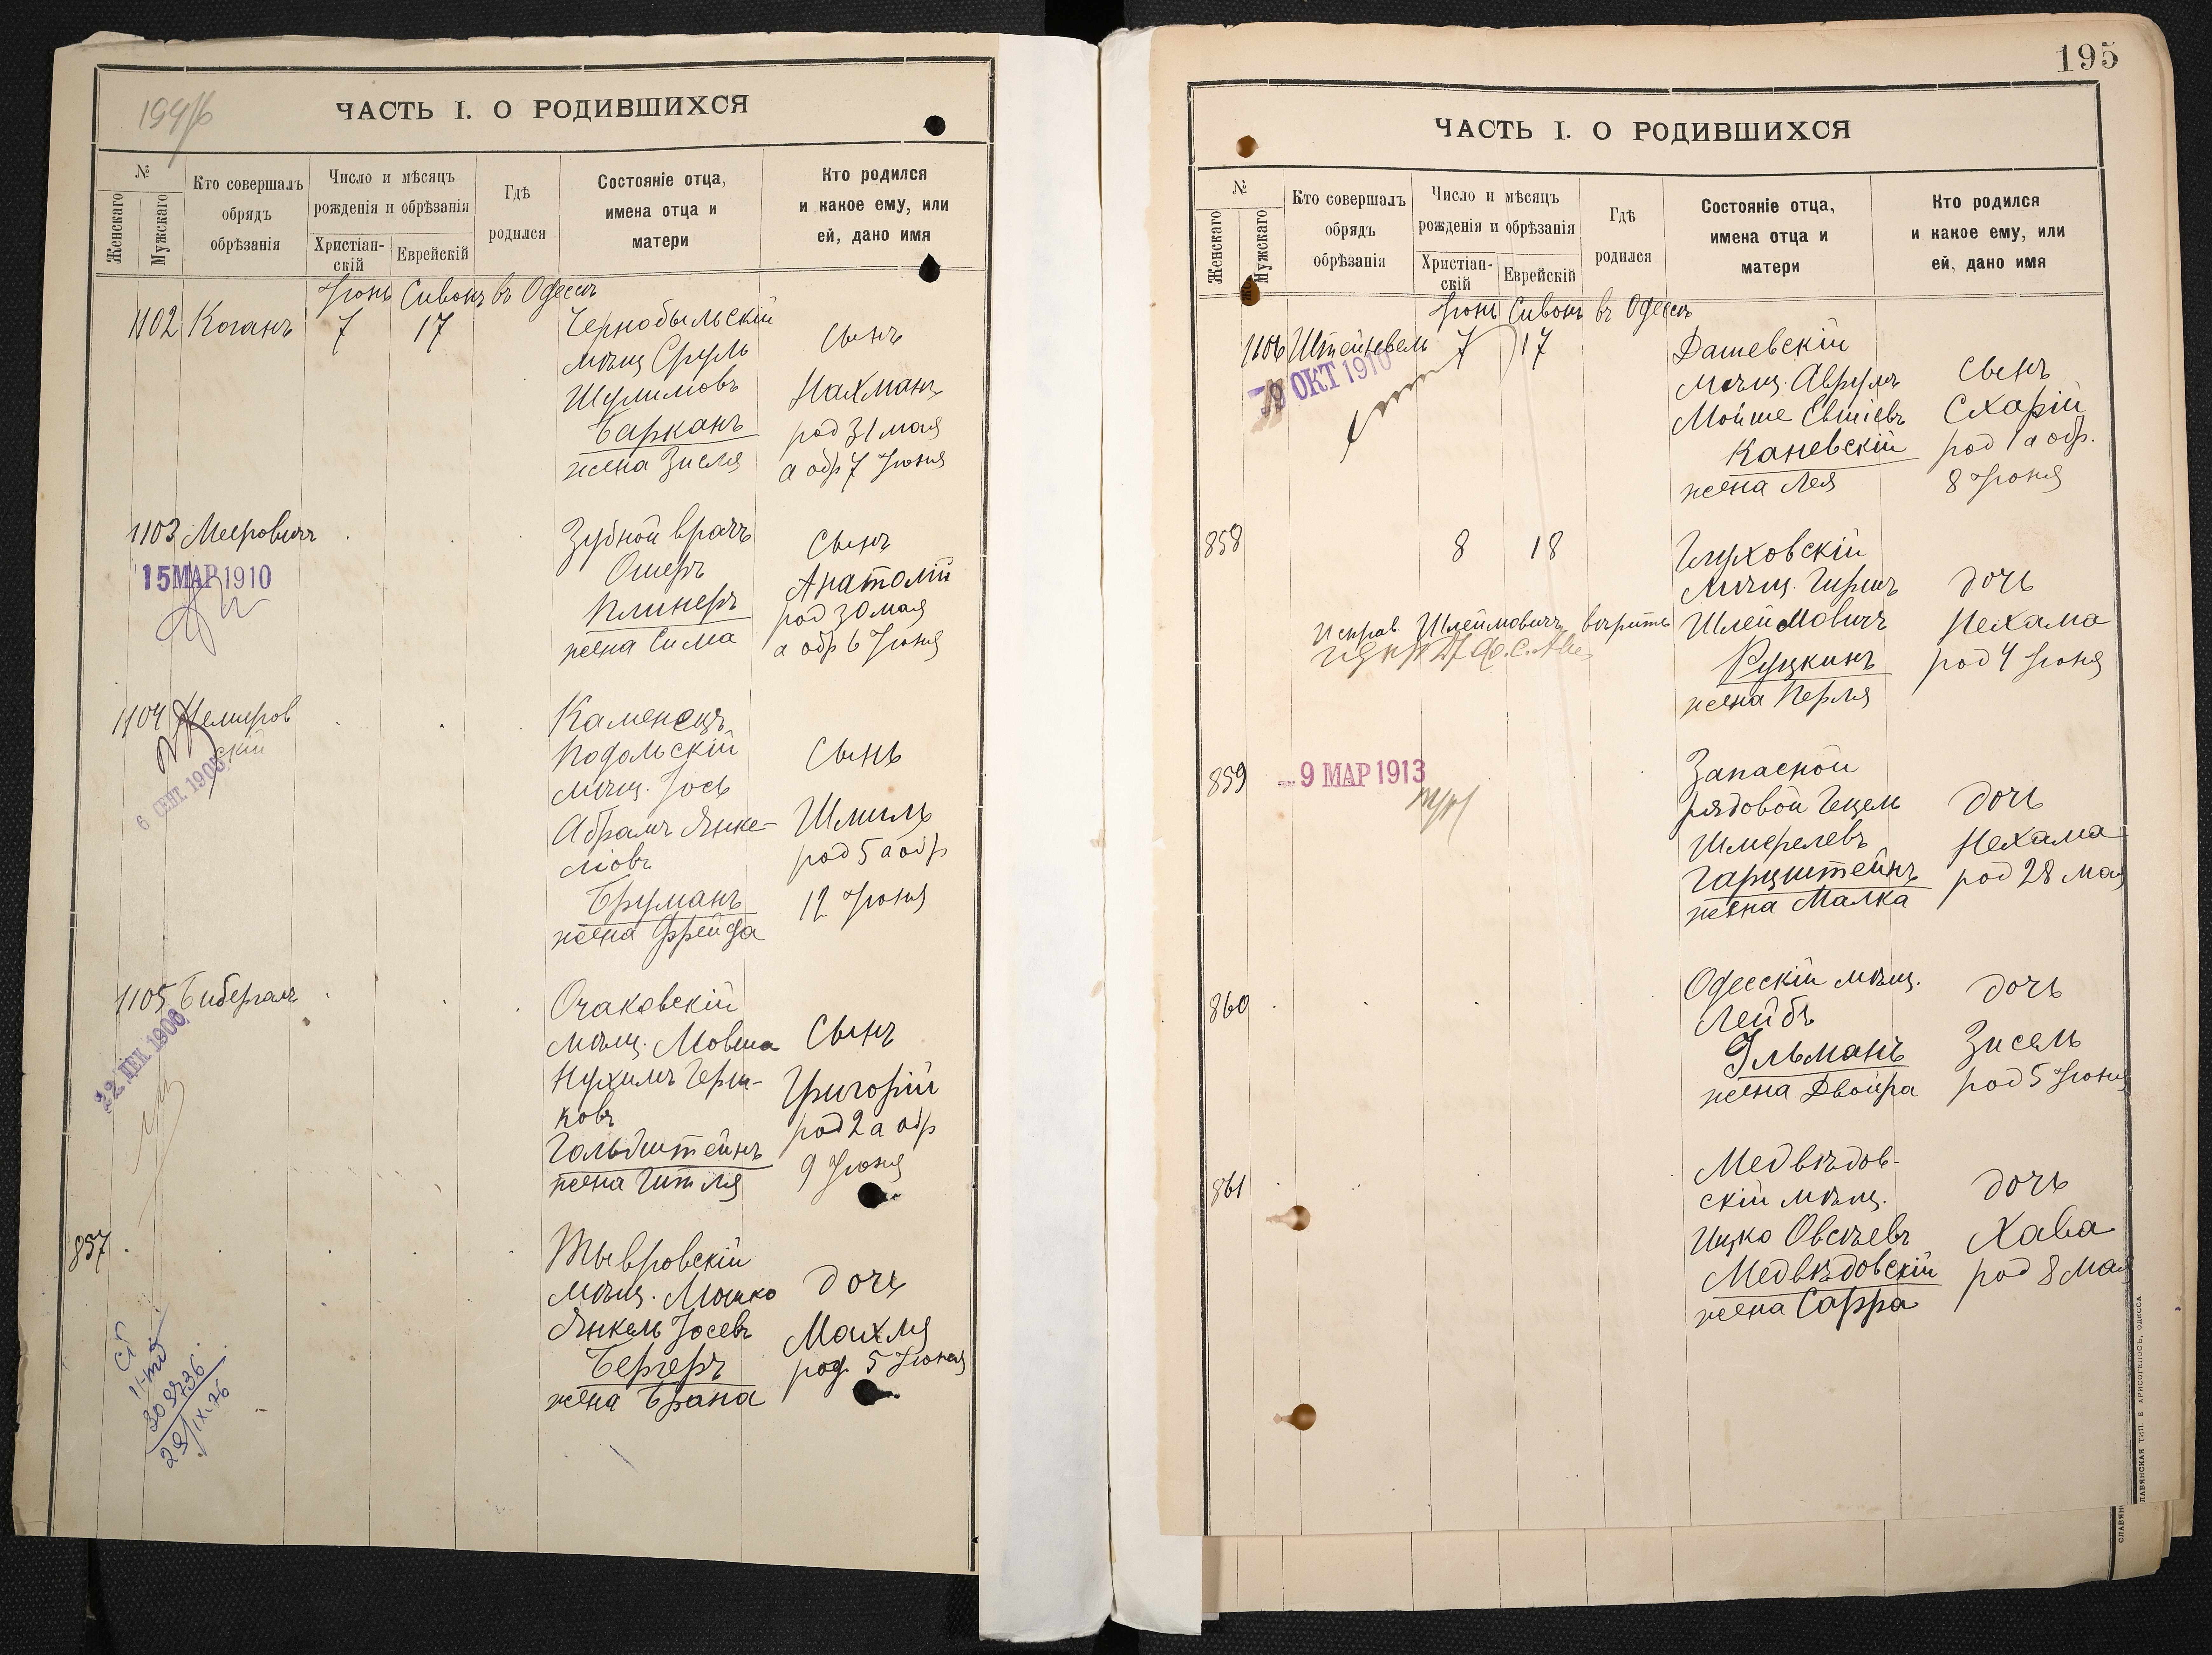 194/б
ЧАСТЬ I. О РОДИВШИХСЯ
№
Женскаго
Мужскаго
Кто совершалъ
обрядъ
обрѣзанія
Число и мѣсяцъ
рожденія и обрѣзанія
Христіан-
скій
Еврейскій
Гдѣ
родился
Состояніе отца,
имена отца и
матери
Кто родился
и какое ему, или
ей, дано имя
Іюнь Сивонъ въ Одессѣ
1102 Коганъ 7 17
Чернобыльскій
мѣщ Сруль
Шулимовъ
Барканъ
жена Зисля
Сынъ
Нахманъ
род 31 мая
а обр 7 Іюня
1103 Мееровичъ
15 МАР 1910
Зубной врачъ
Ошеръ
Клинеръ
жена Сима
Сынъ
Анатолій
род 30 мая
а обр 6 Іюня
1104 Немиров
скій
6 СЕНТ. 1905
Каменецъ
Подольскій
мѣщ. Іось
Абрамъ Янке-
ліовъ
Бруманъ
жена Фрейда
Сынъ
Шмиль
род 5 а обр
12 Іюня
1105 Бибергалъ
22 ДЕК. 1906
Очаковскій
мѣщ. Мовша
Нухимъ Герш-
ковъ
Гольдштейнъ
жена Гитля
Сынъ
Григорій
род 2 а обр
9 Іюня
857
Тывровскій
мѣщ. Мошко
Янкель Іосевъ
Бергеръ
жена Брана
дочь
Махля
род 5 Іюня
309736
29/IX.76
195
ЧАСТЬ I. О РОДИВШИХСЯ
№
Женскаго
Мужскаго
Кто совершалъ
обрядъ
обрѣзанія
Число и мѣсяцъ
рожденія и обрѣзанія
Христіан-
скій
Еврейскій
Гдѣ
родился
Состояніе отца,
имена отца и
матери
Кто родился
и какое ему, или
ей, дано имя
Іюнь Сивонъ въ Одессѣ
1106 Штейнвель 7 17
ОКТ 1910
Дашевскій
мѣщ. Аврумъ
Мойше Евшіевъ
Каневскій
жена Лея
Сынъ
Схарій
род 1 а обр.
8 Іюня
858 8 18
Глуховскій
мѣщ. Гиршъ
Шлеймовичъ
Руцкинъ
жена Перля
дочь
Нехама
род 4 Іюня
Исправ. Шлеймовичъ вѣрить
859
9 МАР 1913
Запасной
рядовой Гецель
Шмерелевъ
Гарцштейнъ
жена Малка
дочь
Нехама
род 28 мая
860
Одесскій мѣщ.
Лейбъ
Гльманъ
жена Двойра
дочь
Зисель
род 5 Іюня
861
Медвѣдов-
скій мѣщ.
Ицко Овсѣевъ
Медвѣдовскій
жена Сарра
дочь
Хава
род 8 Мая
ЛАВЯНСКАЯ ТИП. Е. ХРИСОГЕЛОСЪ, ОДЕССА
СЛАВЯН